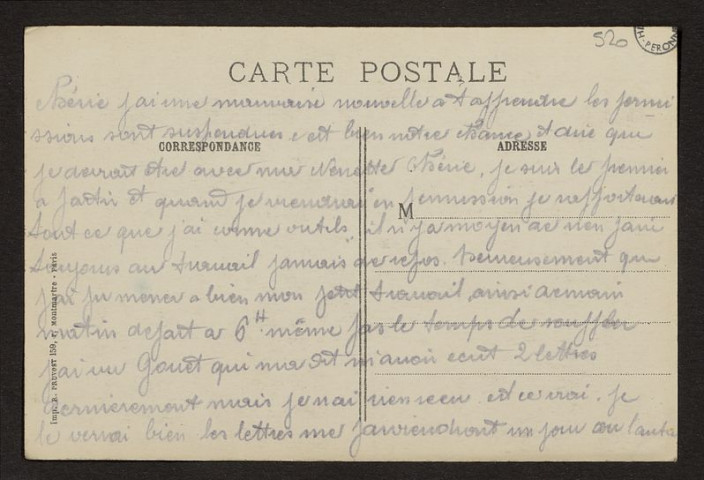 520
CARTE POSTALE
Chérie j'ai une mauvaise nouvelle a t'apprendre les permi
ssions sont suspendues c'est bien notre chance et dire que
CORRESPONDANCE
ADRESSE
je devrait être avec ma Nénette Chérie, je suis le premier
a partir et quand je viendrai en permission je rapporterai
M
tout ce que j'ai comme outils, il n'y a moyen de rien faire
toujours au travail jamais de repos. heureusement que
j'ai pu mener a bien mon petit travail, ainsi demain
matin depart a 6 H même pas le temps de souffler
j'ai vu Gouet qui ma dit m'avoir ecrit 2 lettres
dernièrement mais je n'ai rien reçu. est ce vrai. je
le verrai bien les lettres me parviendront un jour ou l'autre
Imp. E. PREVOST 159, r. Montmartre - Paris
PERONNE